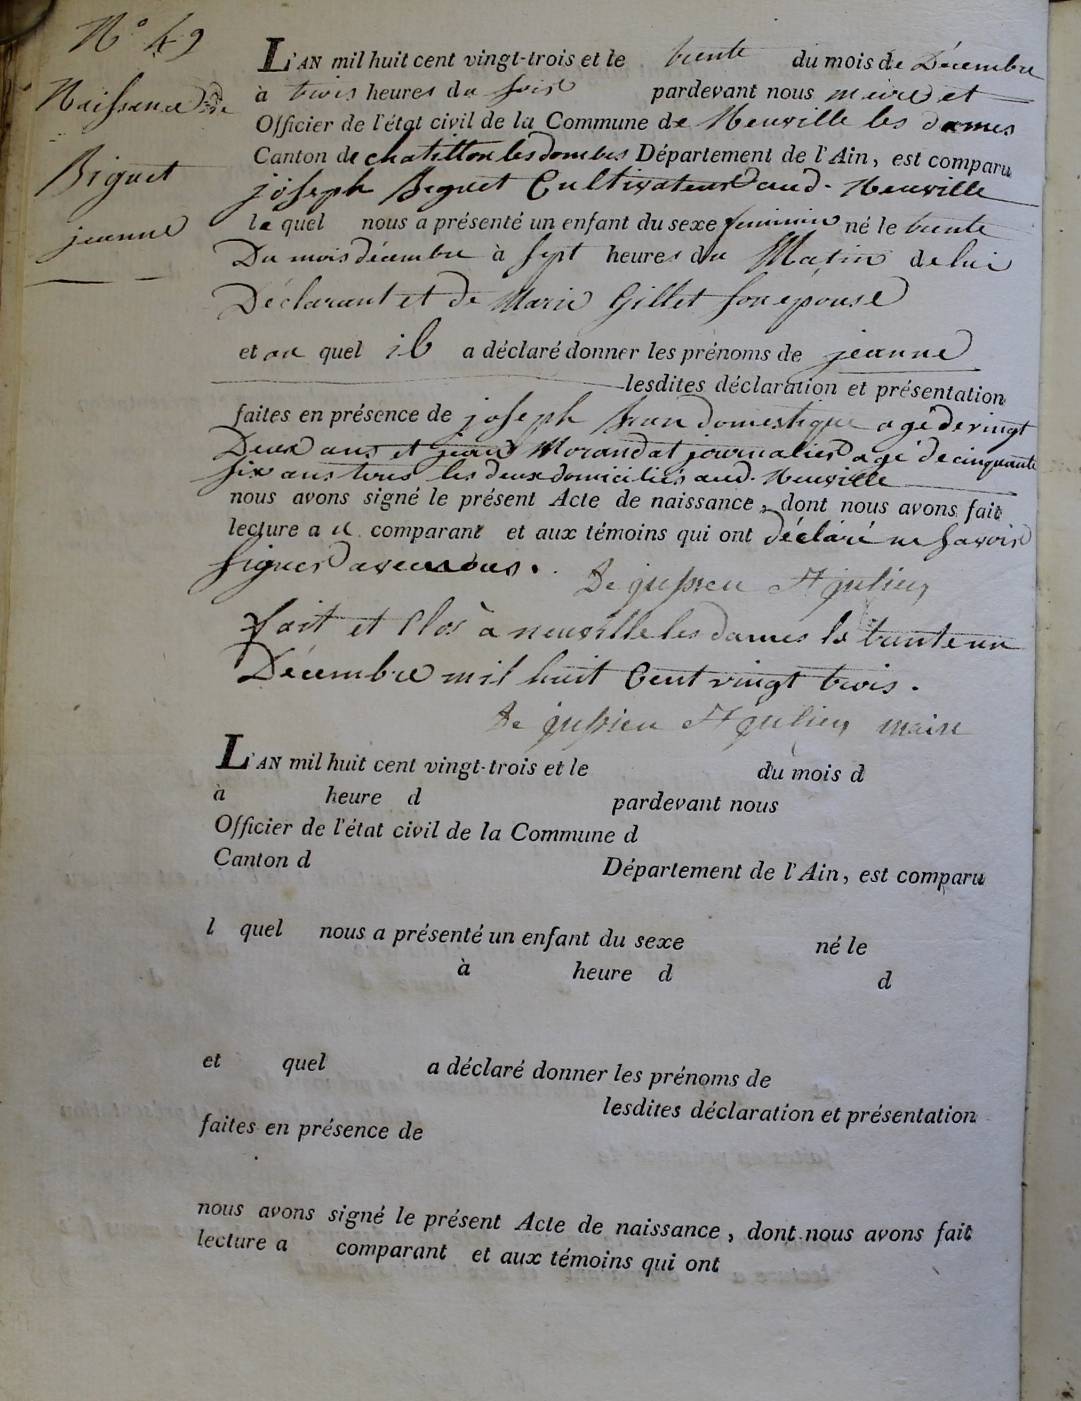 N° 49
Naissance de
Biguet
jeanne
L'AN mil huit cent vingt-trois et le trente du mois de Décembre
à trois heures du soir pardevant nous maire et
Officier de l'état civil de la Commune de Neuville les dames
Canton de chatillon les dombes Département de l'Ain, est comparu
joseph Biguet Cultivateur aud. Neuville
le quel nous a présenté un enfant du sexe feminin né le trente
Du mois décembre à sept heures du Matin de lui
Déclarant et de Marie Gillet son epouse
et au quel il a déclaré donner les prénoms de jeanne
lesdites déclaration et présentation
faites en présence de joseph domestique agé de vingt
Deux ans et jean Morandat journalier agé de cinquante
six ans tous les deux domiciliés aud. Neuville
nous avons signé le présent Acte de naissance, dont nous avons fait
lecture au comparant et aux témoins qui ont déclaré ne savoir
signer avec nous.
De jussieu St julien
fait et Clos à neuville les dames le trente un
Décembre mil huit Cent vingt trois.
De jussieu St julien maire
L'AN mil huit cent vingt-trois et le du mois d
à heure d pardevant nous
Officier de l'état civil de la Commune d
Canton d Département de l'Ain, est comparu
l quel nous a présenté un enfant du sexe né le
à heure d d
et quel a déclaré donner les prénoms de
lesdites déclaration et présentation
faites en présence de
nous avons signé le présent Acte de naissance, dont nous avons fait
lecture a comparant et aux témoins qui ont